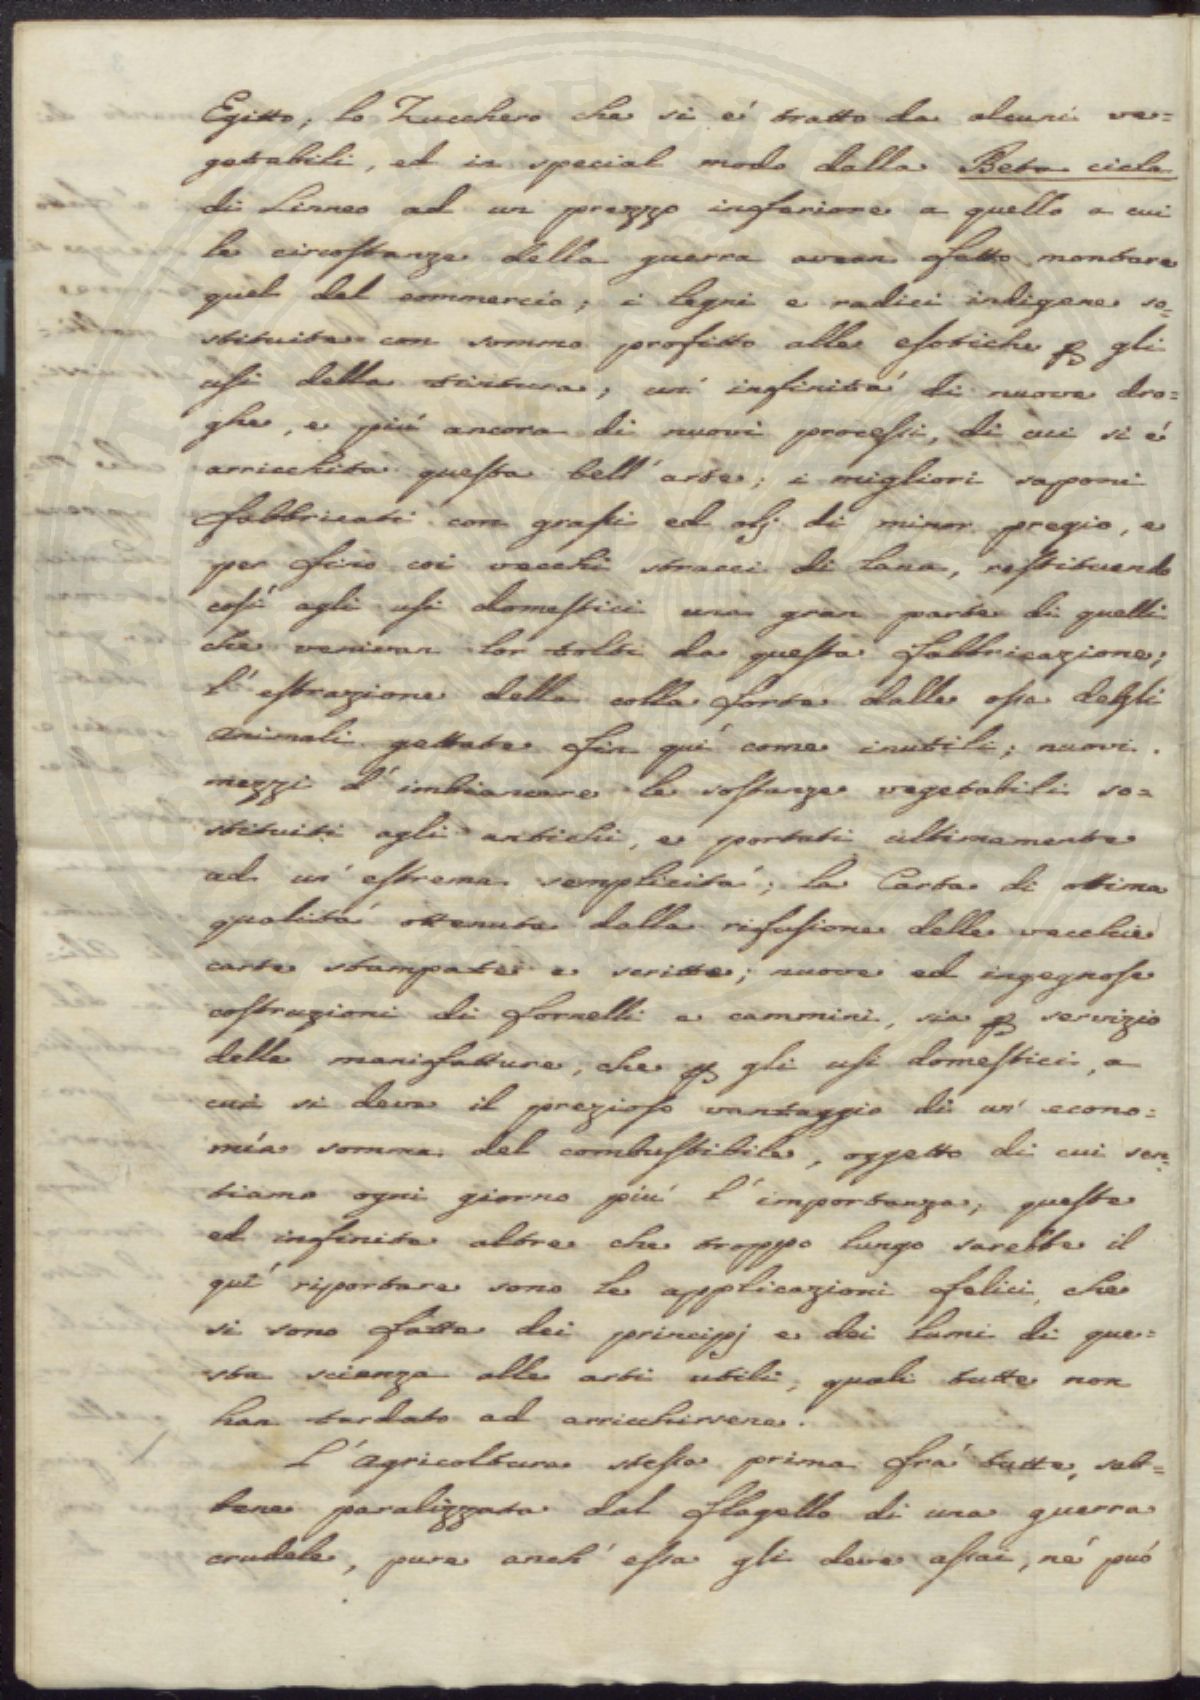 Egitto; lo Zucchero che si é tratto da alcuni ve=
getabili, ed in special modo dalla Beta cicla
di Linneo ad un prezzo inferiore a quello a cui
le circostanze della guerra avean fatto montare
quel del commercio; i legni e radici indigene so=
stituite con sommo profitto alle esotiche ꝑ gli
usi della tintura; un' infinitá di nuove dro=
ghe, e piú ancora di nuovi processi, di cui si é
arricchita questa bell' arte; i migliori saponi
fabbricati con grassi ed olj di minor pregio, e
per fino coi vecchi stracci di lana, restituendo
cosí agli usi domestici una gran parte di quelli
che venivan lor tolti da questa fabbricazione;
l' estrazione della colla forte dalle ossa degli
animali gettate fin quí come inutili; nuovi
mezzi d' imbiancare le sostanze vegetabili so=
stituiti agli antichi, e portati ultimamente
ad un' estrema semplicitá; la Carta di ottima
qualitá ottenuta dalla rifusione delle vecchie
carte stampate e scritte; nuove ed ingegnose
costruzioni di fornelli e cammini, sia ꝑ servizio
delle manifatture, che ꝑ gli usi domestici, a
cui si deve il prezioso vantaggio di un' econo=
mía somma del combustibile, oggetto di cui sen=
tiamo ogni giorno piú l' importanza; queste
ed infinite altre che troppo lungo sarebbe il
quí riportare sono le applicazioni felici, che
si sono fatte dei principj e dei lumi di que=
sta scienza alle arti utili, quali tutte non
han tardato ad arricchirsene.
L' Agricoltura stessa prima frá tutte, seb=
bene paralizzata dal flagello di una guerra
crudele, pure anch' essa gli deve assai, né puó